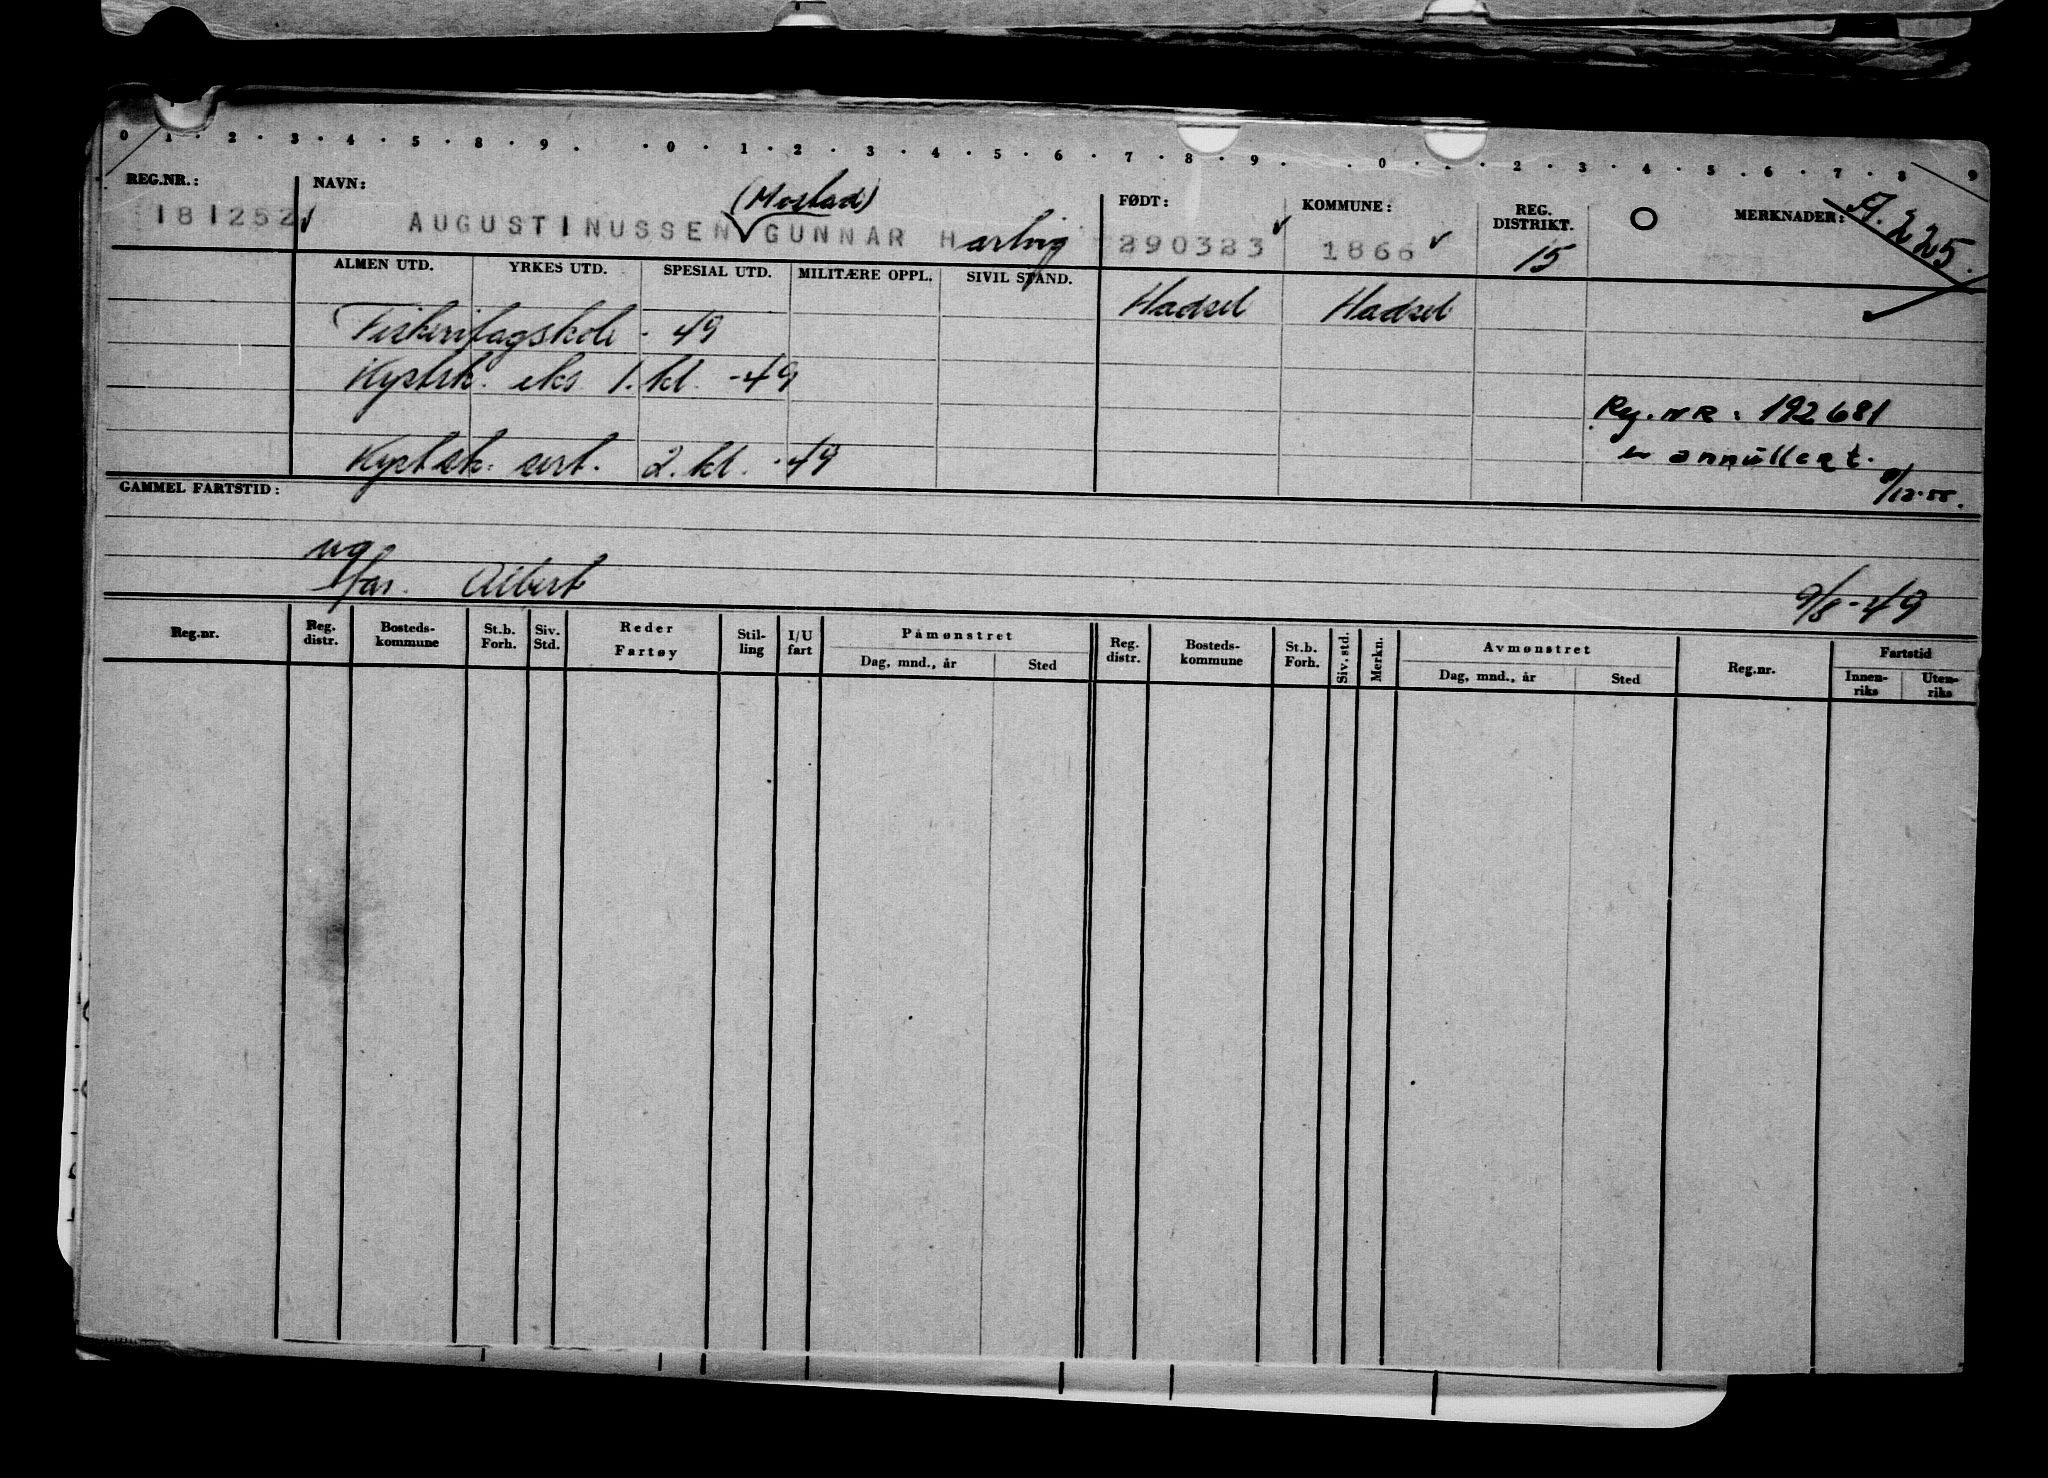 0 1 · 2 · 3 · 4 · 5 · 8 · 9 · · 0 · 1 · 2 · 3 · 4 · 5 · 6 · 7 · 8 · 9 · · 0 · · 2 · 3 · 4 · 5 · 6 · 7 · 8 · 9
REG.NR.: NAVN: (Mostad) FØDT: KOMMUNE: REG. DISTRIKT. O MERKNADER: A. 225.
181252 AUGUSTINUSSEN GUNNAR Hartvig 290323 1866 15
ALMEN UTD. YRKES UTD. SPESIAL UTD. MILITÆRE OPPL. SIVIL STAND. Hadsel Hadsel
Fiskerifagskole - 49
Kystsk. eks 1. kl. -49
Reg. NR: 192681
er annullert.
Kystsk. sert. 2. kl. -49
8/12-55.
GAMMEL FARTSTID:
ug
Far. Albert 9/8-49
Reg.nr. Reg. distr. Bosteds-kommune St.b. Forh. Siv. Std. Reder Fartøy Stil-ling I/U fart Påmønstret Dag, mnd., år Sted Reg. distr. Bosteds-kommune St.b. Forh. Siv. std. Merkn. Avmønstret Dag, mnd., år Sted Reg.nr. Fartstid Innen-riks Uten-riks